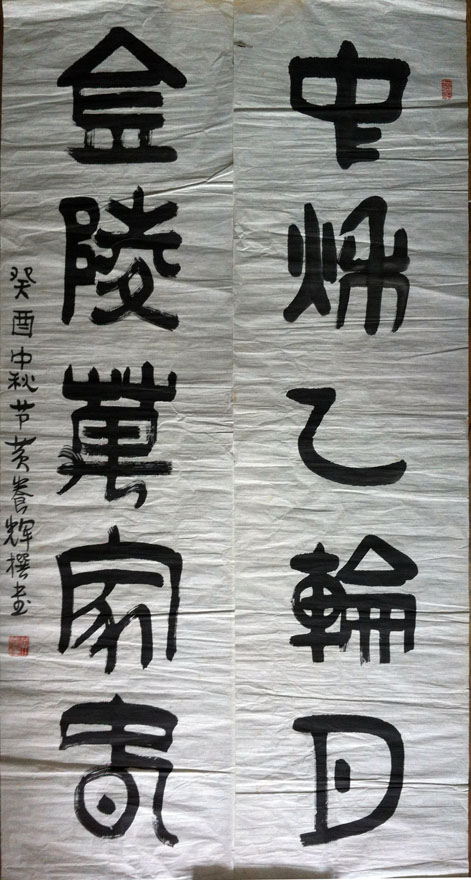 中秌乙輪月
金陵萬家旾
癸酉中秋节黄養辉撰书